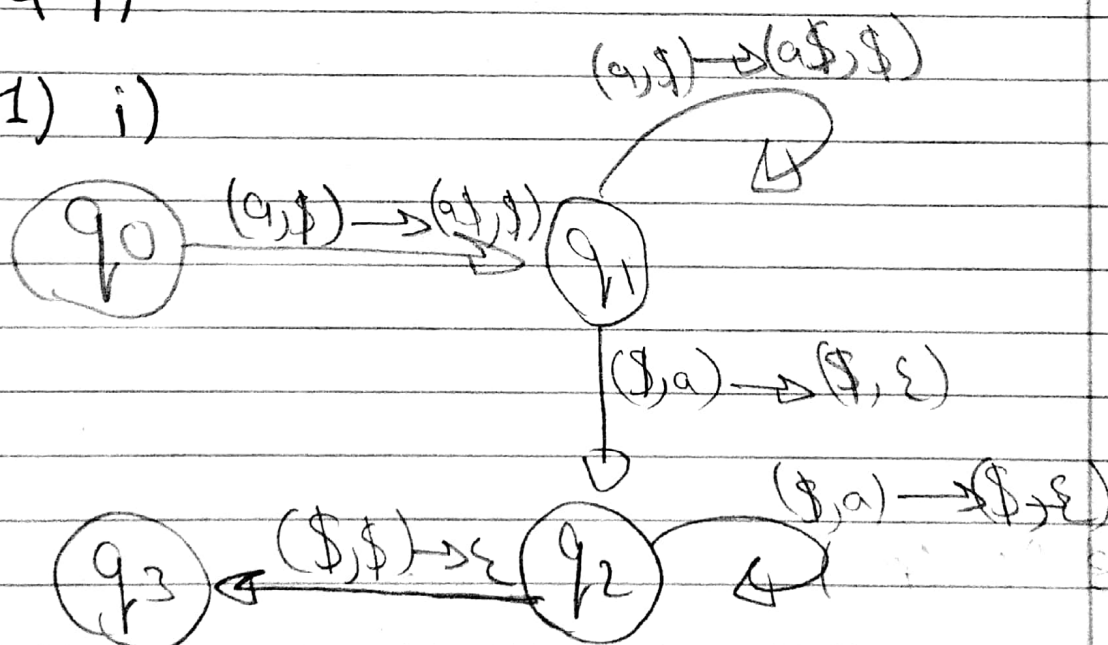 1) i)
(a,$)→(a$,$)
q0 (a,$)→(a$,$) q1
($,a)→($,ε)
($,a)→($,ε)
q3 ($,$)→ε q2